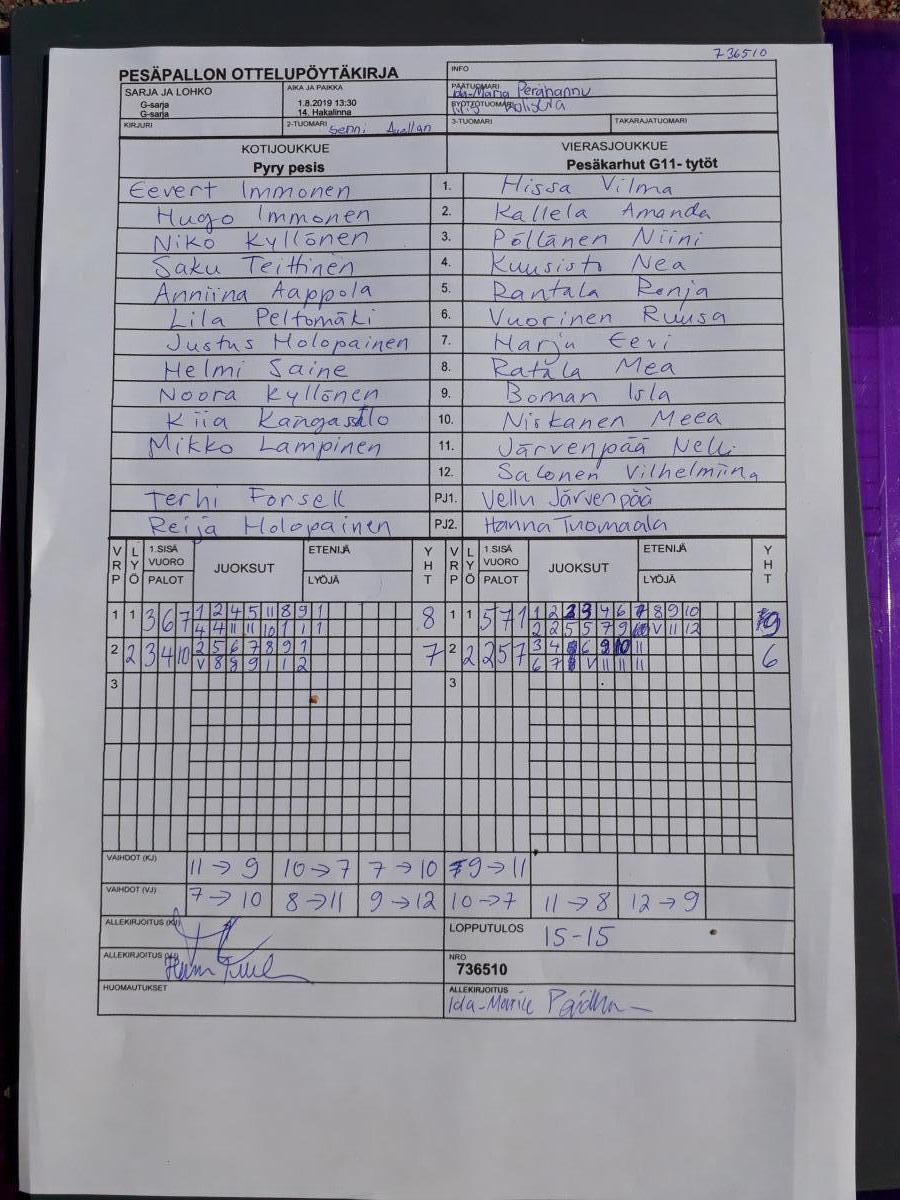 736510
PESÄPALLON OTTELUPÖYTÄKIRJA
INFO
SARJA JA LOHKO
G-sarja
G-sarja
AIKA JA PAIKKA
1.8.2019 13:30
14. Hakalinna
PÄÄTUOMARI
Ida-Maria Perähannu
SYÖTTÖTUOMARI
KIRJURI
2-TUOMARI Senni
3-TUOMARI
TAKARAJATUOMARI
KOTIJOUKKUE
Pyry pesis
VIERASJOUKKUE
Pesäkarhut G11- tytöt
Eevert Immonen 1. Hissa Vilma
Hugo Immonen 2. Kallela Amanda
Niko Kyllönen 3. Pöllänen Niini
Saku Teittinen 4. Kuusisto Nea
Anniina Aappola 5. Rantala Ronja
Lila Peltomäki 6. Vuorinen Ruusa
Justus Holopainen 7. Harju Eevi
Helmi Saine 8. Ratala Mea
Noora Kyllönen 9. Boman Isla
Kiia 10. Niskanen Meea
Mikko Lampinen 11. Järvenpää Nelli
12. Salonen Vilhelmiina
Terhi Forsell PJ1. Vellu Järvenpää
Reija Holopainen PJ2. Hanna Tuomaala
VRP LYÖ 1.SISÄ VUORO PALOT JUOKSUT ETENIJÄ LYÖJÄ YHT VRP LYÖ 1.SISÄ VUORO PALOT JUOKSUT ETENIJÄ LYÖJÄ YHT
1 1 3 6 7 1 2 4 5 11 8 9 1 8 1 1 5 7 1 1 2 3 4 6 7 8 9 10 9
4 4 11 11 10 1 1 1 2 2 5 5 7 9 10 V 11 12
2 2 3 4 10 2 5 6 7 8 9 1 7 2 2 2 5 7 3 4 6 9 10 11 6
V 8 8 9 1 1 2 6 7 V 11 11 11
3 3
VAIHDOT (KJ) 11 → 9 10 → 7 7 → 10 9 → 11
VAIHDOT (VJ) 7 → 10 8 → 11 9 → 12 10 → 7 11 → 8 12 → 9
ALLEKIRJOITUS (KJ)
LOPPUTULOS 15-15
ALLEKIRJOITUS (VJ)
NRO
736510
HUOMAUTUKSET
ALLEKIRJOITUS
Ida-Maria